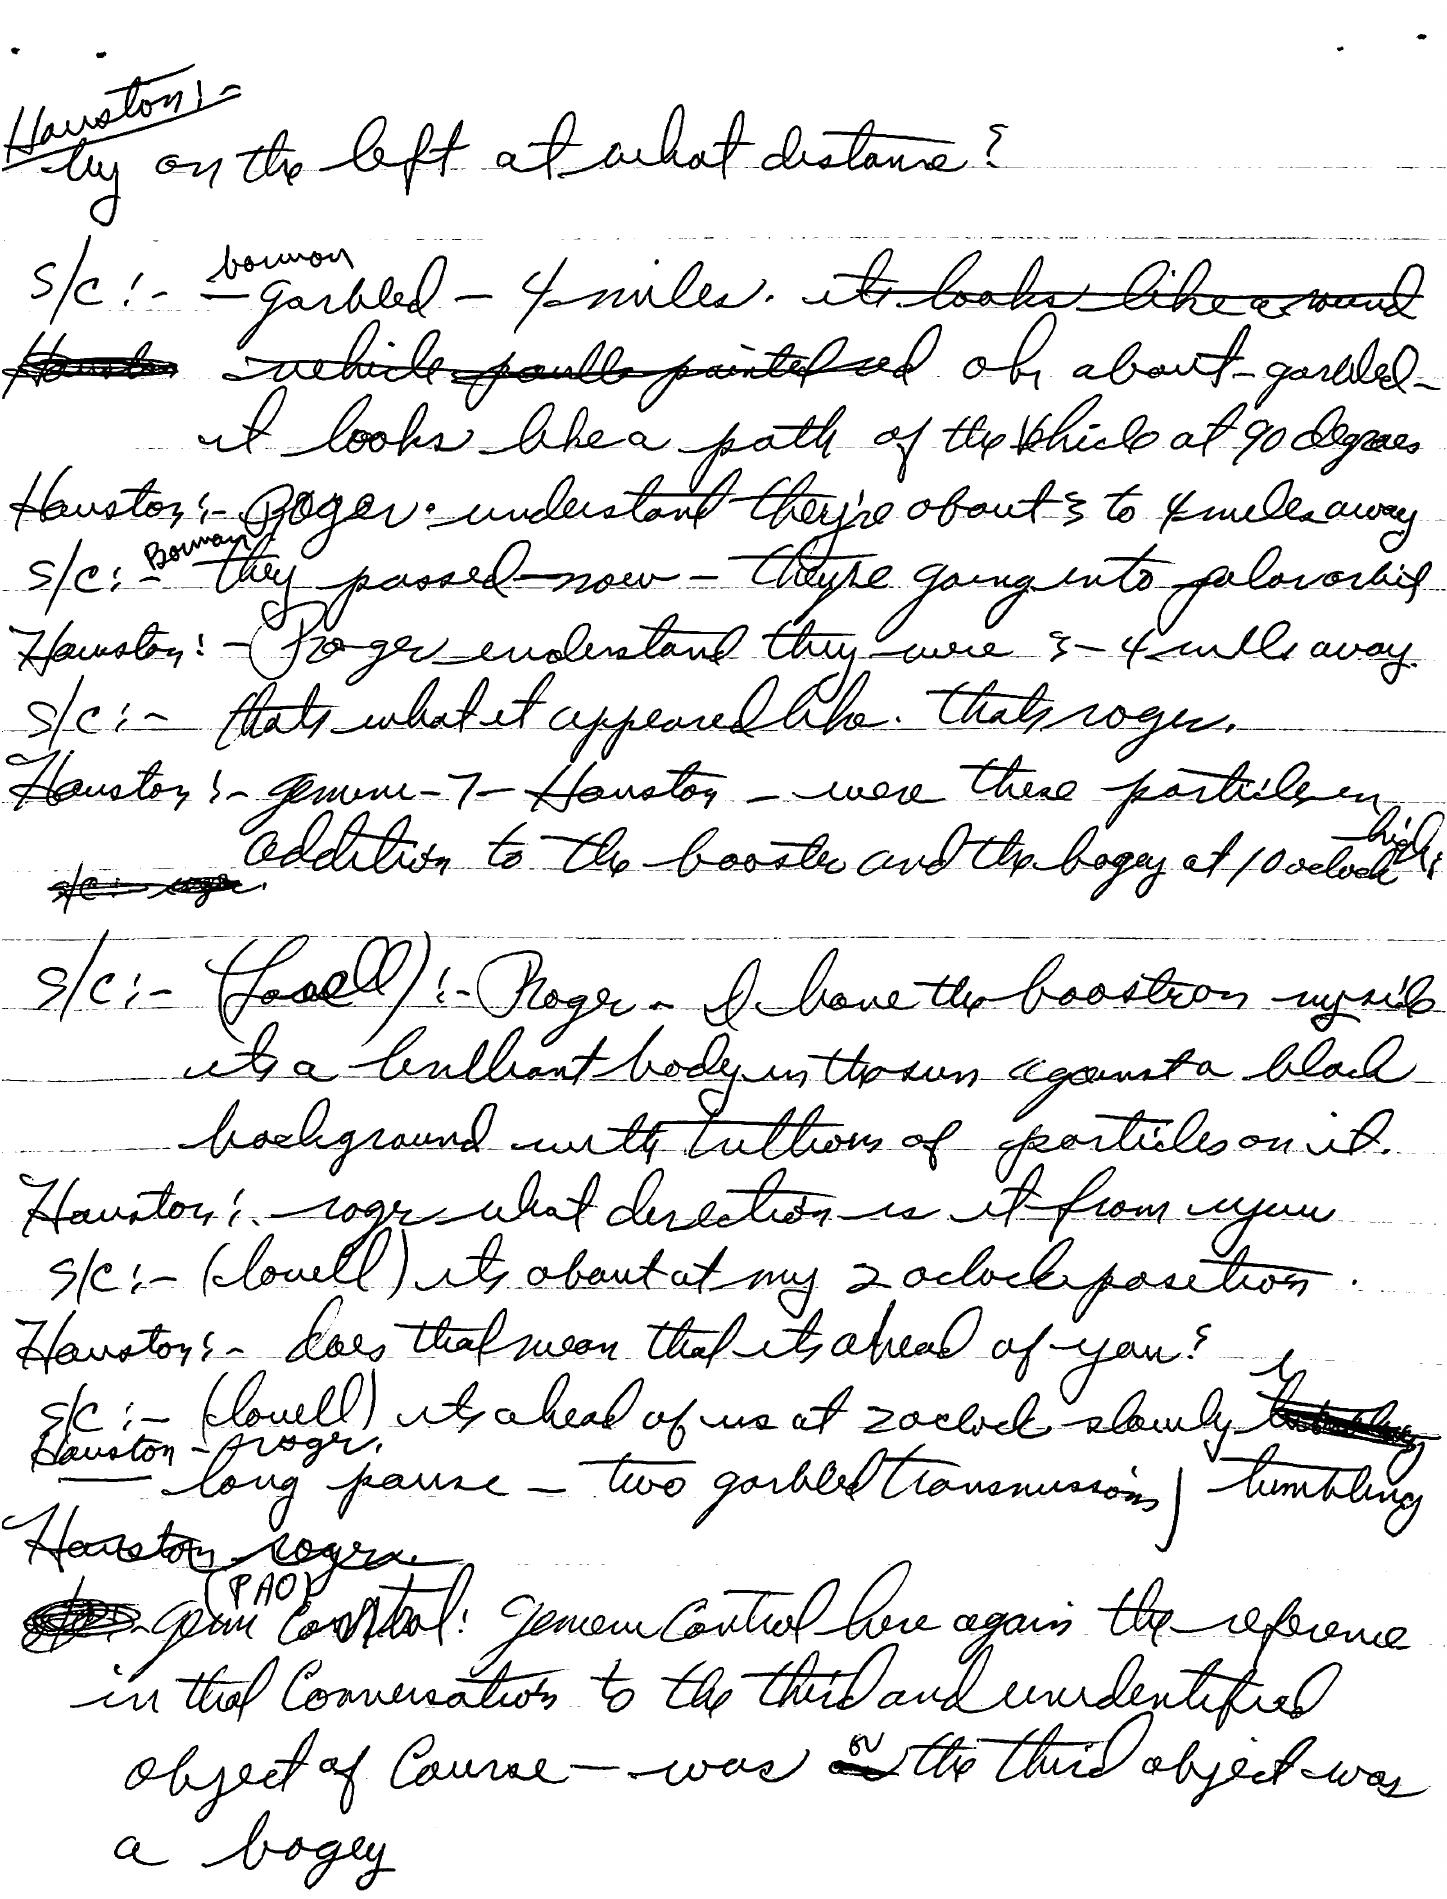 Houston:-
by on the left at what distance?
S/C:- borman
- garbled - 4 miles. it looks like a round
Houston vehicle painted red oh about - garbled -
it looks like a path of the vehicle at 90 degrees
Houston:- Roger. understand they're about 3 to 4 miles away
S/C:- Borman they passed now - they're going into polar orbit
Houston:- Roger understand they were 3-4 miles away
S/C:- thats what it appeared like. thats roger.
Houston:- gemini-7- Houston - were these particles in
addition to the booster and the bogey at 10 oclock high?
S/C:- roger.
S/C:- (Lovell):- Roger - I have the booster on my side
its a brilliant body in the sun against a black
background with trillions of particles on it.
Houston:- roger what direction is it from you
S/C:- (lovell) its about at my 2 oclock position.
Houston:- does that mean that its ahead of you?
S/C:- (lovell) its ahead of us at 2 oclock slowly
Houston - roger.
long pause - two garbled transmissions) tumbling
Houston roger
(PAO)
gemi Control: Gemini Control here again the reference
in that Conversation to the third and unidentified
object of Course - was or the third object was
a bogey